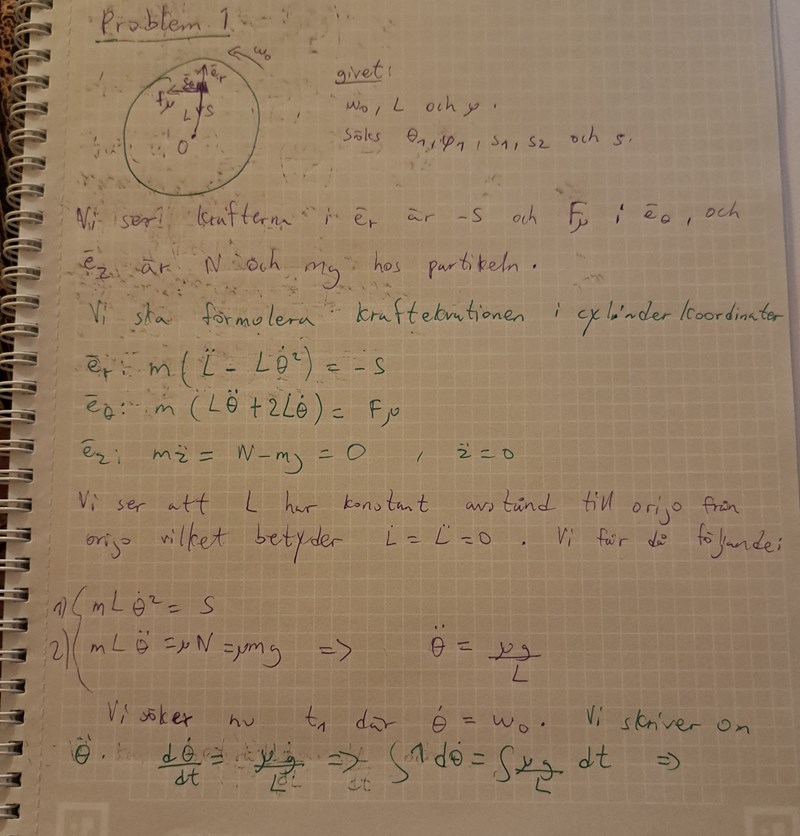 Problem 1
ω₀
ē_r
ē_θ
F_μ
L
S
O
givet:
ω₀, L och μ.
söks θ₁, φ₁, s₁, s₂ och s.
Vi ser krafterna i ē_r är -S och F_μ i ē_θ, och
ē_z är N och mg hos partikeln.
Vi ska formulera kraftekvationen i cylinderkoordinater
ē_r: m(L̈ - Lθ̇²) = -S
ē_θ: m (Lθ̈ + 2L̇θ̇) = F_μ
ē_z: mz̈ = N-mg = 0 , z̈ = 0
Vi ser att L har konstant avstånd till origo från
origo vilket betyder L̇ = L̈ = 0 . Vi får då följande:
1) mLθ̇² = S
2) mLθ̈ = μN = μmg => θ̈ = μg/L
Vi söker nu t₁ där θ̇ = ω₀. Vi skriver om
θ̈. dθ̇/dt = μg/L => ∫1 dθ̇ = ∫μg/L dt =>